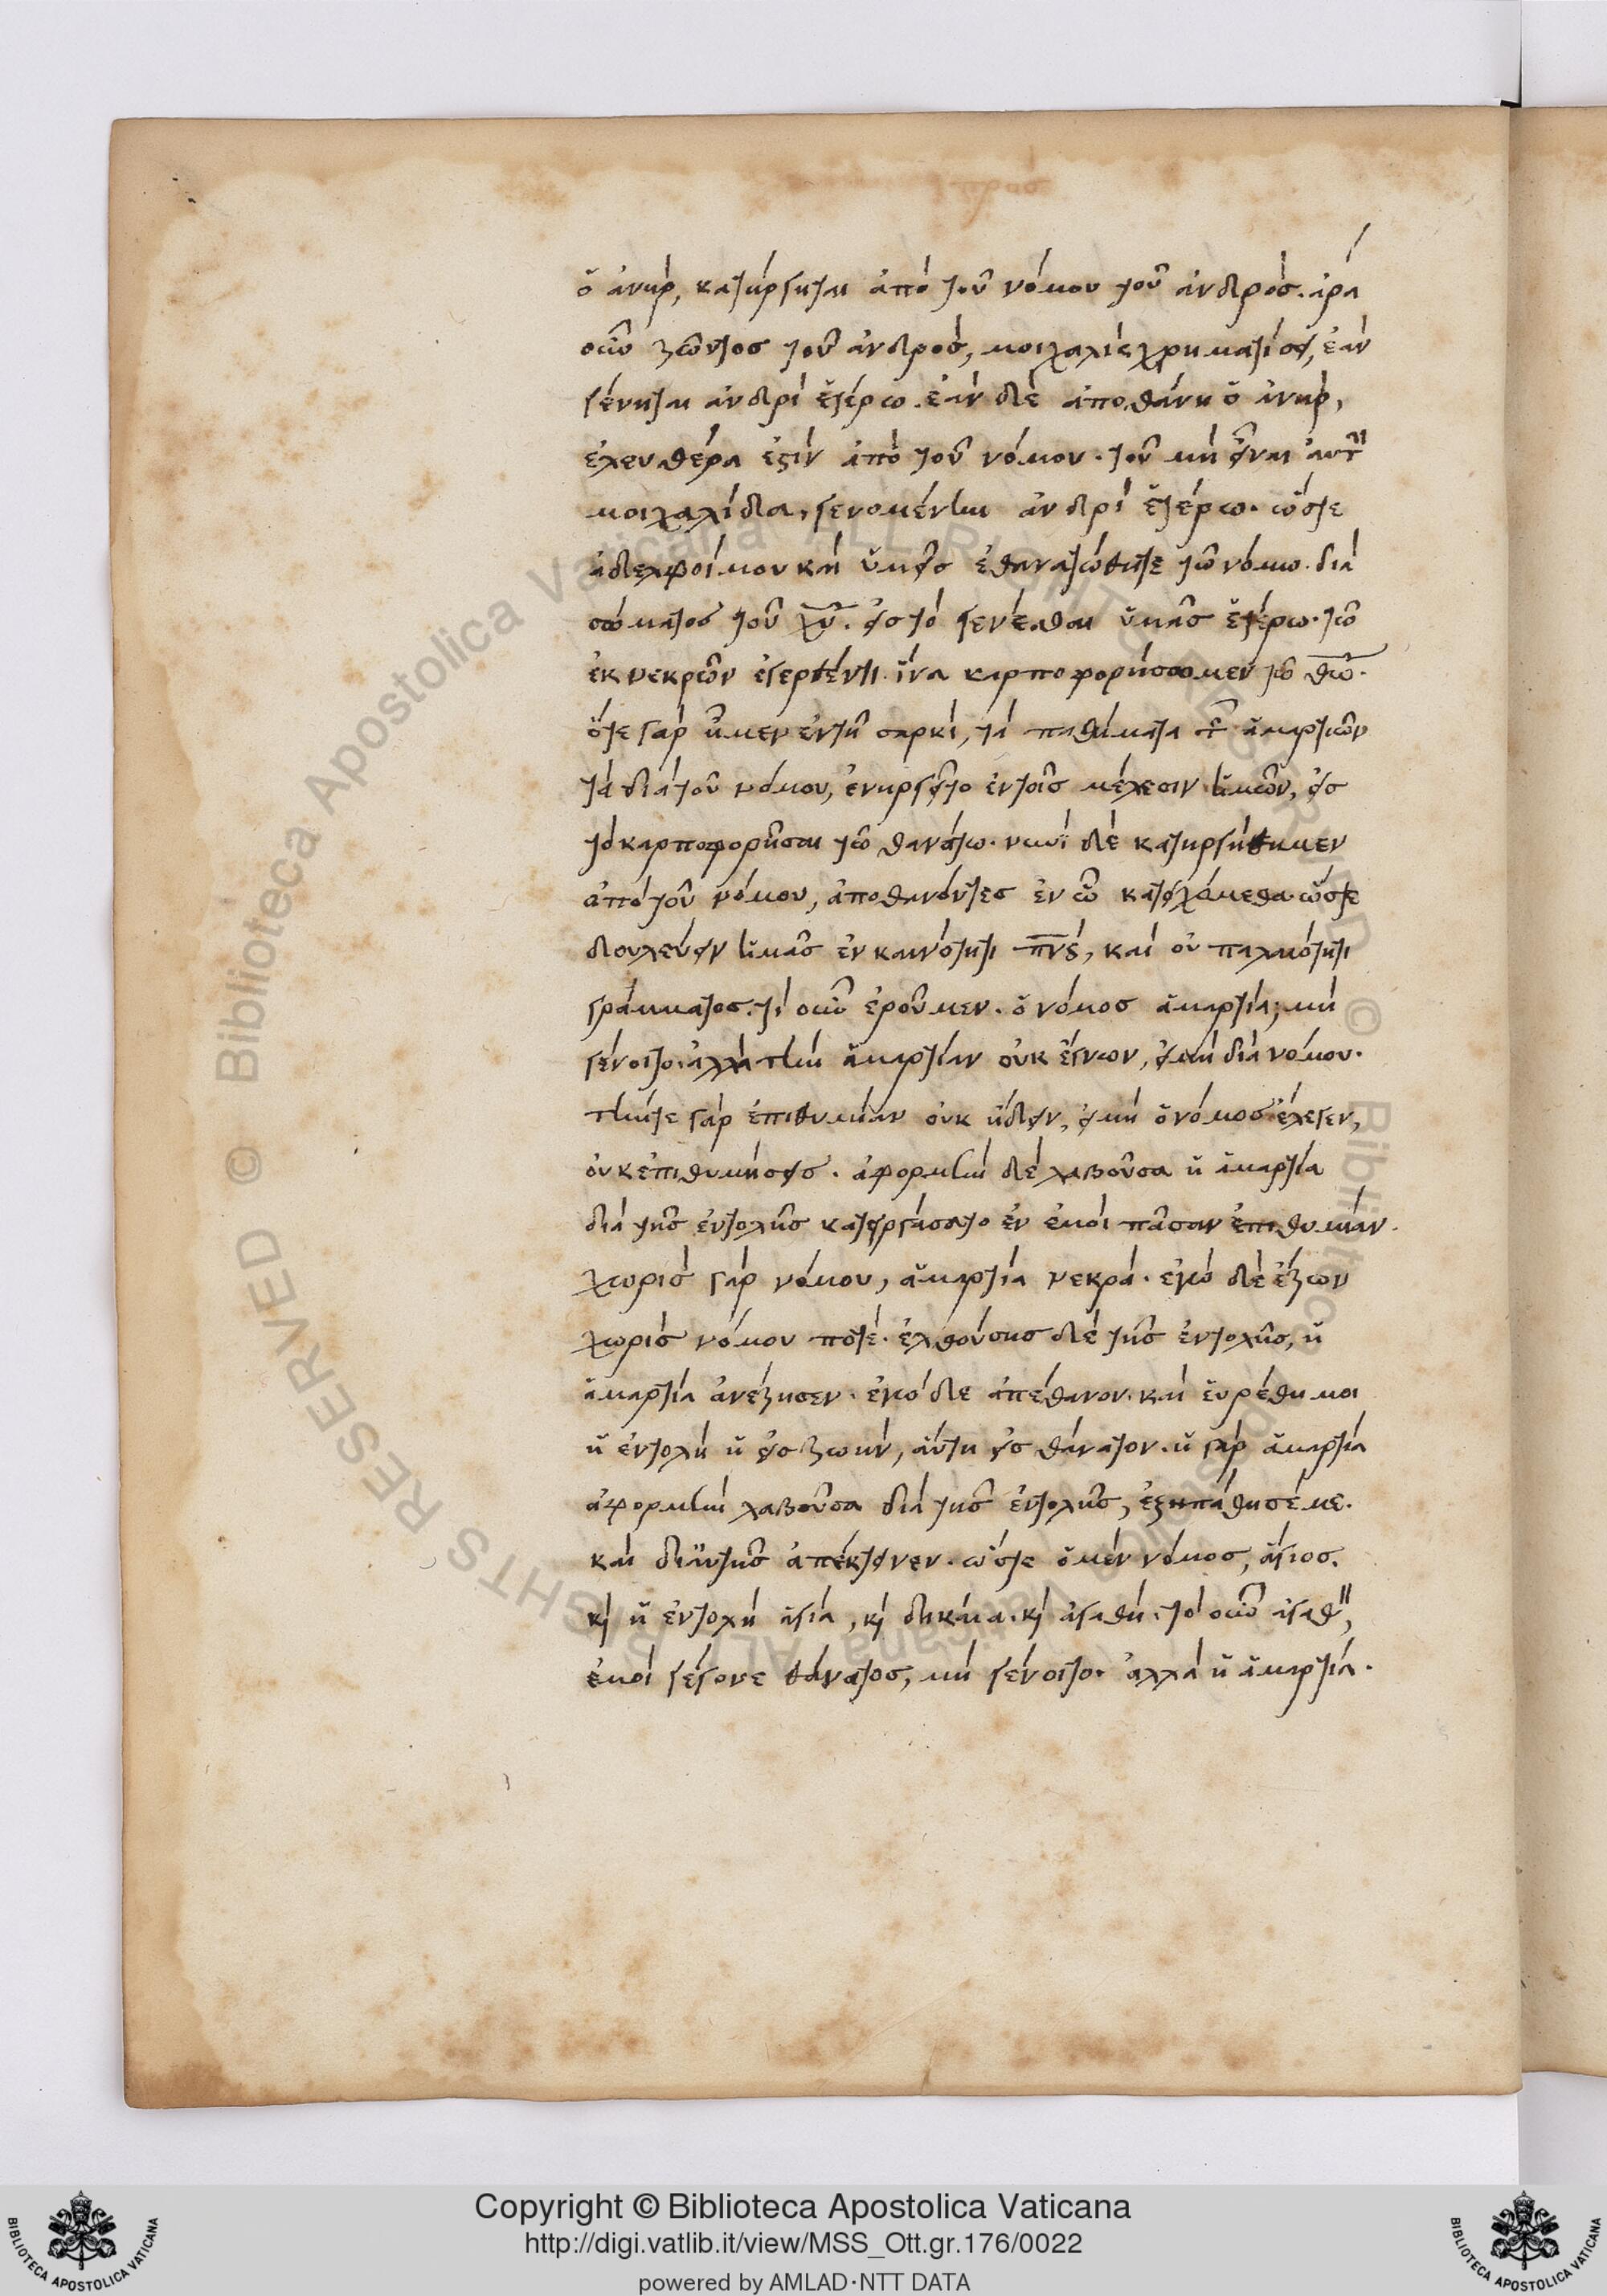 ὁ ἀνὴρ, κατήργηται ἀπὸ τοῦ νόμου τοῦ ἀνδρὸς. ἄρα
οὖν ζῶντος τοῦ ἀνδρὸς, μοιχαλὶς χρηματίσει, ἐὰν
γένηται ἀνδρὶ ἑτέρω. ἐὰν δὲ ἀποθάνη ὁ ἀνὴρ,
ἐλευθέρα ἐστὶν ἀπὸ τοῦ νόμου. τοῦ μὴ εἶναι αὐτ
μοιχαλίδα, γενομένην ἀνδρὶ ἑτέρω. ὥστε
ἀδελφοί μου καὶ ὑμεῖς ἐθανατώθητε τῶ νόμω. διὰ
σώματος τοῦ χυ. εἰς τὸ γενέσθαι ὑμᾶς ἑτέρω. τῶ
ἐκ νεκρῶν ἐγερθέντι. ἵνα καρποφορήσωμεν τῶ θω.
ὅτε γὰρ ἦμεν ἐν τῆ σαρκὶ, τὰ παθήματα τ ἁμαρτιῶν
τὰ διὰ τοῦ νόμου, ἐνηργεῖτο ἐν τοῖς μέλεσιν ἡμῶν, εἰς
τὸ καρποφορῆσαι τῶ θανάτω. νυνὶ δὲ κατηργήθημεν
ἀπὸ τοῦ νόμου, ἀποθανόντες ἐν ὧ κατειχόμεθα. ὥστε
δουλεύειν ἡμᾶς ἐν καινότητι πνς, καὶ οὐ παλαιότητι
γράμματος. τί οὖν ἐροῦμεν. ὁ νόμος ἁμαρτία; μὴ
γένοιτο. ἀλλὰ τὴν ἁμαρτίαν οὐκ ἔγνων, εἰ μὴ διὰ νόμου.
τήν τε γὰρ ἐπιθυμίαν οὐκ ἤδειν, εἰ μὴ ὁ νόμος ἔλεγεν,
οὐκ ἐπιθυμήσεις. ἀφορμὴν δὲ λαβοῦσα ἡ ἁμαρτία
διὰ τῆς ἐντολῆς κατειργάσατο ἐν ἐμοὶ πᾶσαν ἐπιθυμίαν.
χωρὶς γὰρ νόμου, ἁμαρτία νεκρά. ἐγὼ δὲ ἔζων
χωρὶς νόμου ποτέ. ἐλθούσης δὲ τῆς ἐντολῆς, ἡ
ἁμαρτία ἀνέζησεν. ἐγὼ δὲ ἀπέθανον. καὶ εὑρέθη μοι
ἡ ἐντολὴ ἡ εἰς ζωὴν, αὕτη εἰς θάνατον. ἡ γὰρ ἁμαρτία
ἀφορμὴν λαβοῦσα διὰ τῆς ἐντολῆς, ἐξηπάθησέ με.
καὶ δι αὐτῆς ἀπέκτεινεν. ὥστε ὁ μὲν νόμος, ἅγιος.
κὶ ἡ ἐντολὴ ἁγία, κὶ δηκαία. κὶ ἀγαθή. τὸ οὖν ἀγαθ,
ἐμοὶ γέγονε θάνατος, μὴ γένοιτο. ἀλλὰ ἡ ἁμαρτία.
© Biblioteca Apostolica Vaticana ALL RIGHTS RESERVED
© Biblioteca Apostolica Vaticana ALL RIGHTS RESERVED
Copyright © Biblioteca Apostolica Vaticana
http://digi.vatlib.it/view/MSS_Ott.gr.176/0022
powered by AMLAD·NTT DATA
BIBLIOTECA APOSTOLICA VATICANA
BIBLIOTECA APOSTOLICA VATICANA